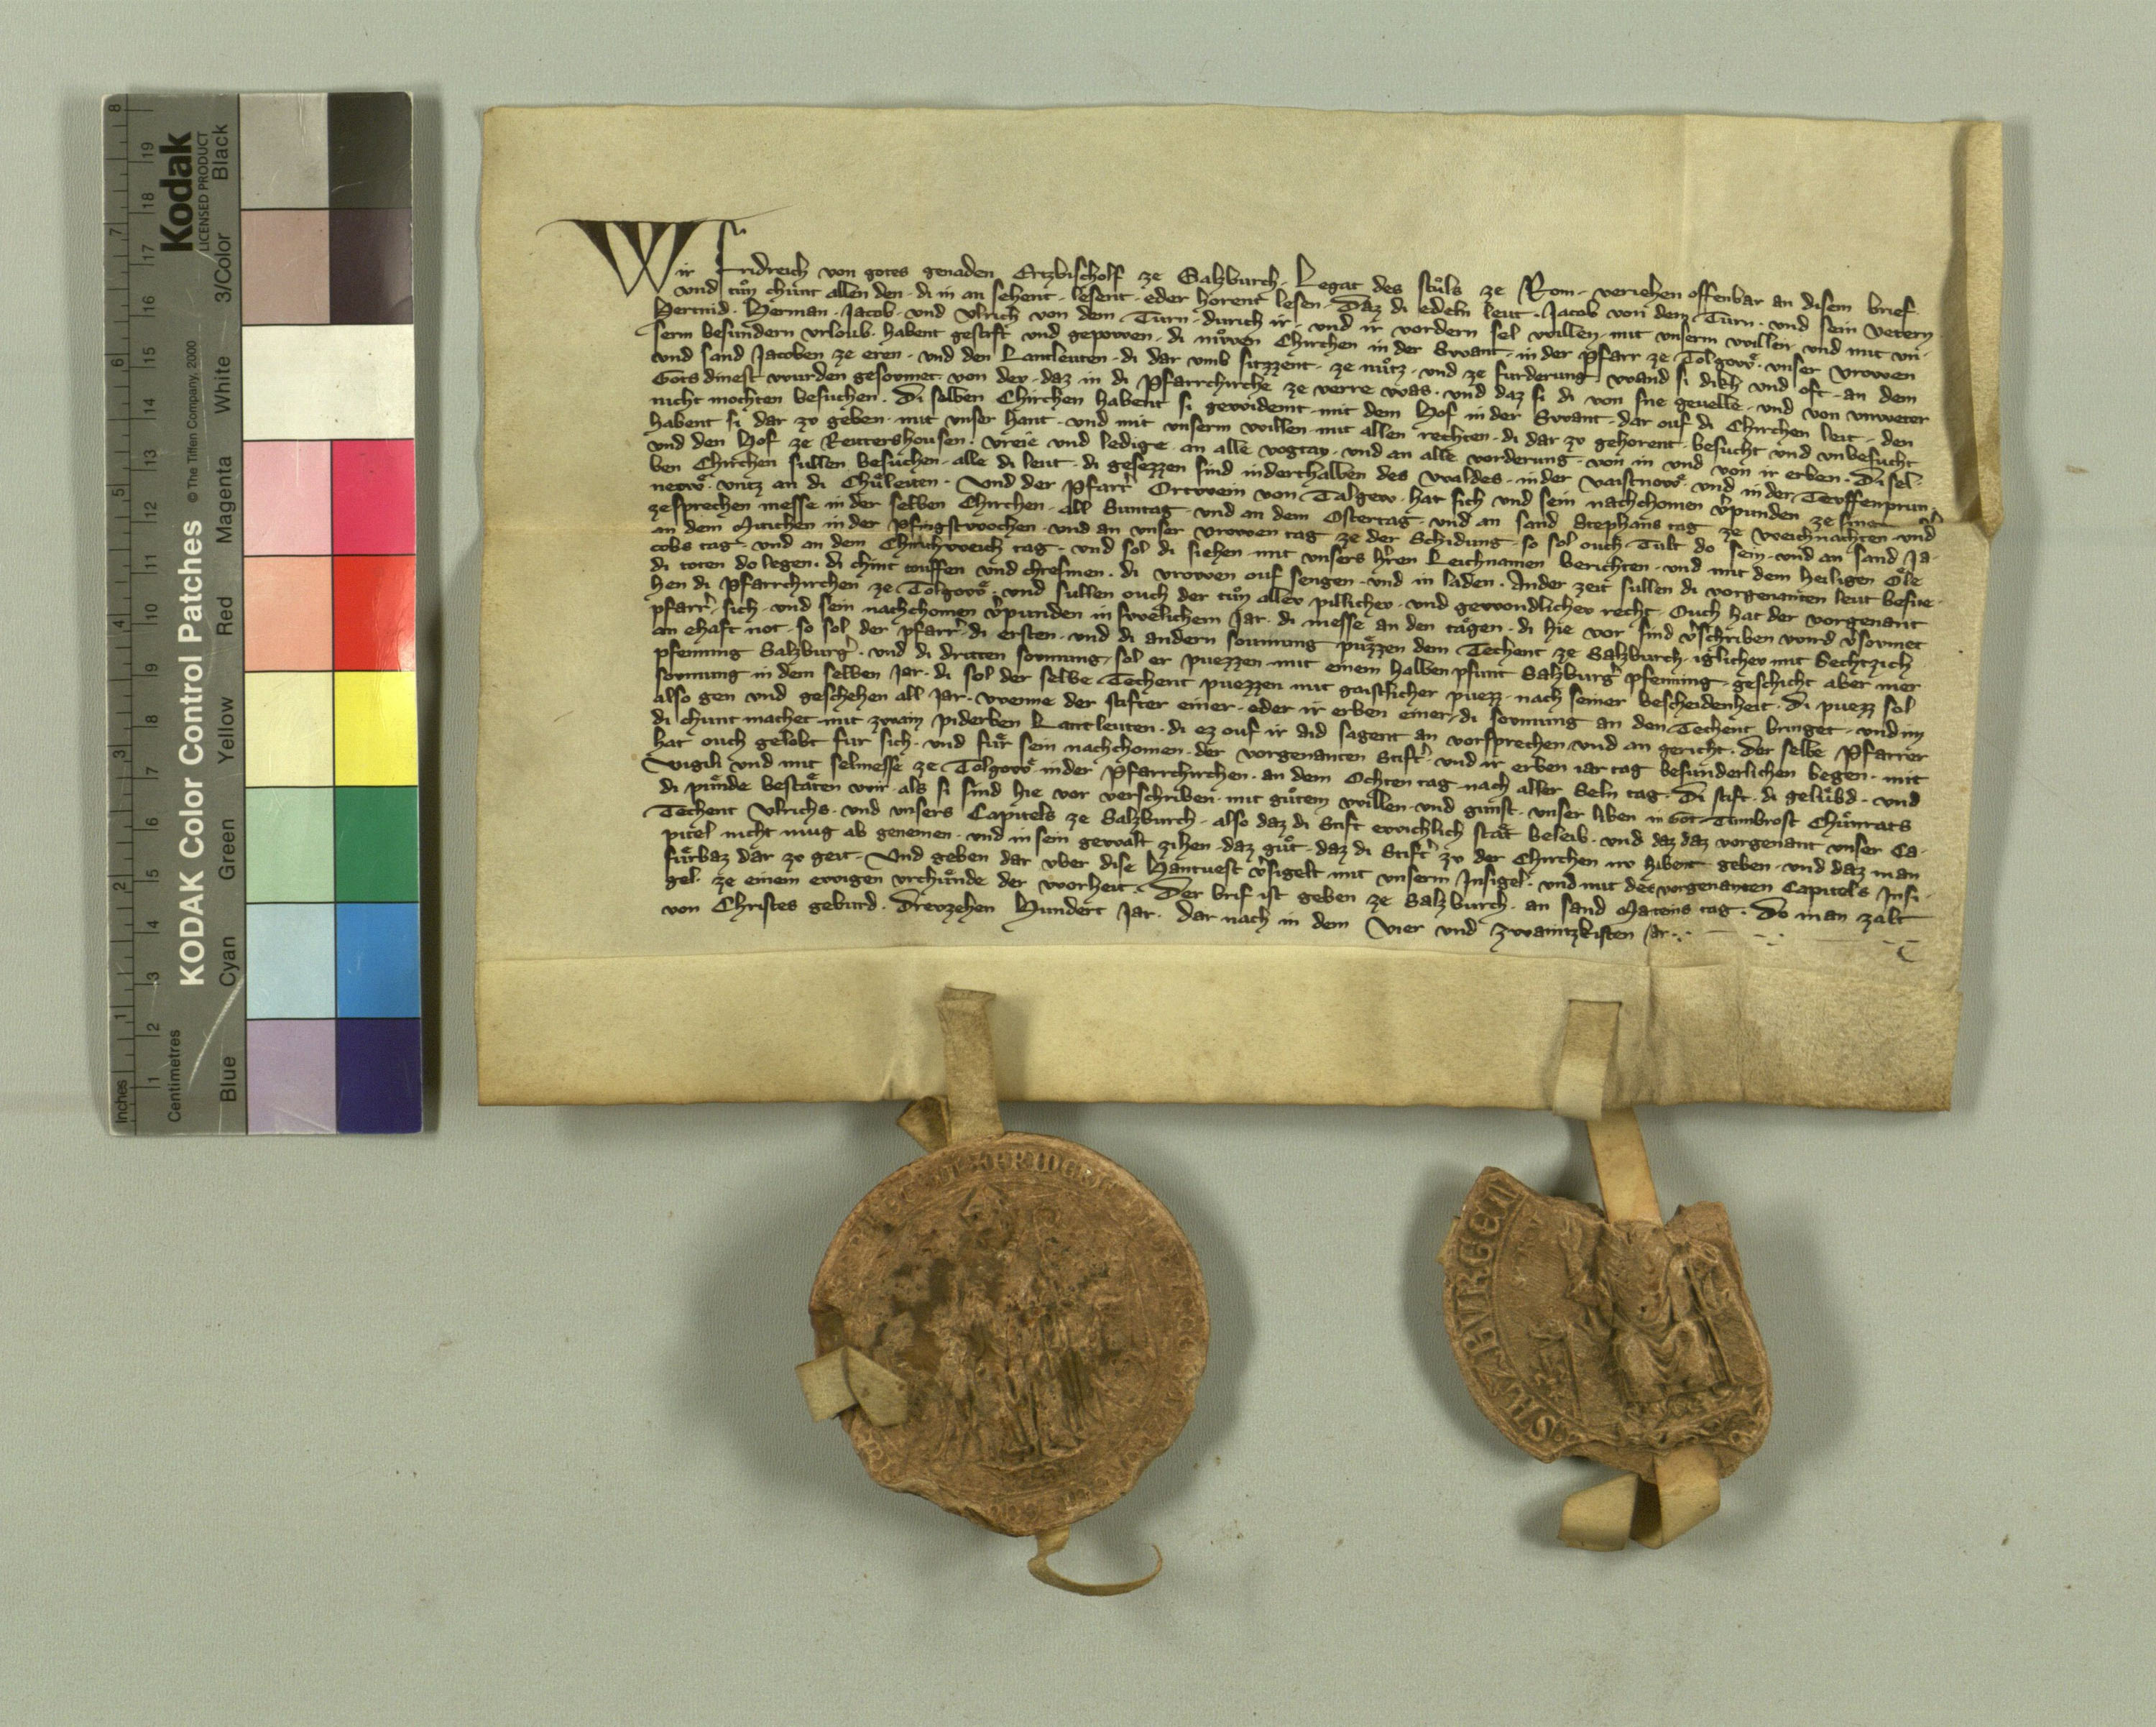 KODAK Color Control Patches
© The Tiffen Company, 2000
Kodak
LICENSED PRODUCT
Inches 1 2 3 4 5 6 7 8
Centimetres 1 2 3 4 5 6 7 8 9 10 11 12 13 14 15 16 17 18 19
Blue Cyan Green Yellow Red Magenta White 3/Color Black
Wir Fridreich von gotes genaden Ertzbischolf ze Salzburch. Legat des stůls ze Rom. veriehen offenbar an disem brief
und tůn chunt allen den. di in an sehent. lesent. eder horent lesen. Daz di edeln leut. Jacob von dem Turn. und sein vetern
Hertnid. Herman. Jacob. und Vlrich von dem Turn. durich ir. und ir vordern sel willen. mit unserm willen und mit un-
serm besundern vrloub. habent gestift und gepowen. di niwen Chirchen in der Swant. in der pfarr ze Tolgowͤ. unser vrowen
und sand Jacoben ze eren. und den Lantleuten. di dar umb sitzzent. ze nůtz. und ze furderung. wand si dikh und oft. an dem
Gots dinest wurden gesovmet. von dev. daz in di Pfarrchirche ze verre was. und daz si di von sne gevelle. und von unweter
nicht mochten besuchen. Di selben Chirchen habent si gewidemt. mit dem Hof in der Swant. dar ouf di Chirchen leit. den
habent si dar zv geben. mit unser hant. und mit unserm willen. mit allen rechten. di dar zv gehorent. besucht und unbesucht
und den Hof ze Reutershousen. vreie und ledige. an alle vogtay. und an alle vorderung. von in und von ir erben. Di sel-
ben Chirchen sullen besuchen. alle di leut. di gesezzen sind inderthalben des waldes. in der vaistnowͤ. und in der Teuffenprun-
nowͤ. untz an di Chůleiten. Und der Pfarr̄ Ortwein von Talgew. hat sich und sein nachchomen v̄punden ze singen od̄
zesprechen messe in der selben Chirchen. all Suntag. und an dem Ostertag. und an sand Stephans tag ze weichnachten. und
an dem Mitichen in der Pfingstwochen. und an unser vrowen tag ze der Schidung. so sol ouch Tult do sein. und an sand Ja-
cobs tag. und an dem Chirchweich tag. und sol di siehen. mit unsers h̄ren Leichnamen berichten. und mit dem heiligen Ôle
di toten do legen. di chint touffen und chresmen. di vrowen ouf sengen. und in laden. Ander zeit sullen di vorgenanten leut besue-
hen di Pfarrchirchen ze Tolgowͤ. und sullen ouch der tůn allev pillichev. und gewondlichev recht. Ouch hat der vorgenant
pfarr̄. sich. und sein nachchomen v̄punden in swelichem Jar. di messe an den tägen. di hie vor sind v̄schriben wurd v̄sovmet
an ehaft not. so sol der pfarr̄. di ersten. und di andern sovmung půzzen dem Techent ze Salzburch. iglichev mit Sechtzich
pfenning Salzburḡ. und di dritten sovmung. sol er puezzen. mit einem halben pfunt Salzburḡ pfenning. geschicht aber mer
sovmung in dem selben Jar. di sol der selbe Techent puezzen mit gaistlicher puezz. nach seiner bescheidenheit. Di puezz sol
also gen und geschehen all Jar. wenne der stifter einer. eder ir erben einer. di sovmung an den Techent bringet. und im
di chunt machet. mit zwain piderben Lantleuten. di ez ouf ir aid sagent an vorsprechen. und an gericht. Der selbe Pfarrer
hat ouch gelobt fur sich. und für sein nachchomen. der vorgenanten Stift̄. und ir erben iar tag besunderlichen begen. mit
Vigili und mit selmesse ze Tolgowͤ. in der Pfarrchirchen. an dem Ochten tag. nach aller Seln tag. Di stift. di gelübd. und
di pünde bestäten wir. als si sind hie vor verschriben. mit gůtem willen. und gunst. unser liben in Got Tumbrost Chůnrats
Techent Vlrichs. und unsers Capitels ze Salzburch. also daz di Stift ewichlich stät beleib. und daz daz vorgenant unser Ca-
pitel nicht mug ab genemen. und in sein gewalt zihen. daz gůt. daz di Stift̄ zv der Chirchen nv habent geben. und daz man
fürbaz dar zv geit. Und geben dar vber dise Hantvest v̄sigelt mit unserm Insigel. und mit des vorgenanten Capitels Insi-
gel. ze einem ewigen vrchünde der worheit. Der brif ist geben ze Salzburch. an sand Mateus tag. Do man zalt
von Christes geburd. Drevzehen Hundert Jar. dar nach in dem Vier und zwaintzkisten Jar.
SALZBVRGEN